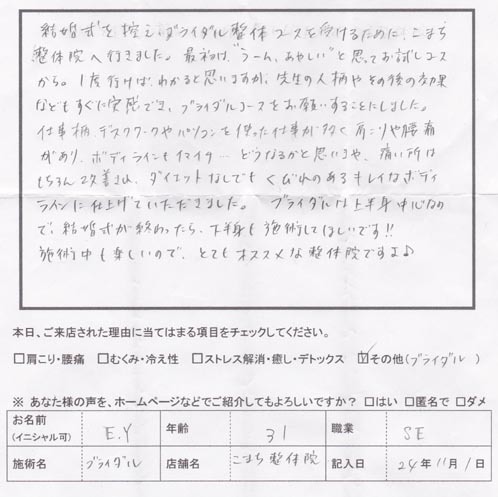 結婚式を控え、ブライダル整体コースを受けるために、こまち
整体院へ行きました。最初は、"うーん、あやしい"と思ってお試しコース
から。1度行けばわかると思いますが、先生の人柄やその後の効果
などもすぐに実感でき、ブライダルコースをお願いすることにしました。
仕事柄、デスクワークやパソコンを使った仕事が多く肩こりや腰痛
があり、ボディラインもイマイチ… どうなるかと思いきや、痛い所は
もちろん改善され、ダイエットなしでもくびれのあるキレイなボディ
ラインに仕上げていただきました。 ブライダルは上半身中心なの
で、結婚式が終わったら、下半身も施術してほしいです!!
施術中も楽しいので、とてもオススメな整体院ですよ♪
本日、ご来店された理由に当てはまる項目をチェックしてください。
□肩こり・腰痛 □むくみ・冷え性 □ストレス解消・癒し・デトックス ☑その他(ブライダル )
※ あなた様の声を、ホームページなどでご紹介してもよろしいですか? □はい □匿名で □ダメ
お名前 (イニシャル可) E.Y 年齢 31 職業 SE
施術名 ブライダル 店舗名 こまち整体院 記入日 24年11月1日